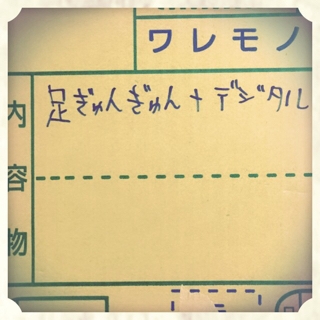 ワレモノ
内容物
足ぎゅんぎゅん+デジタル